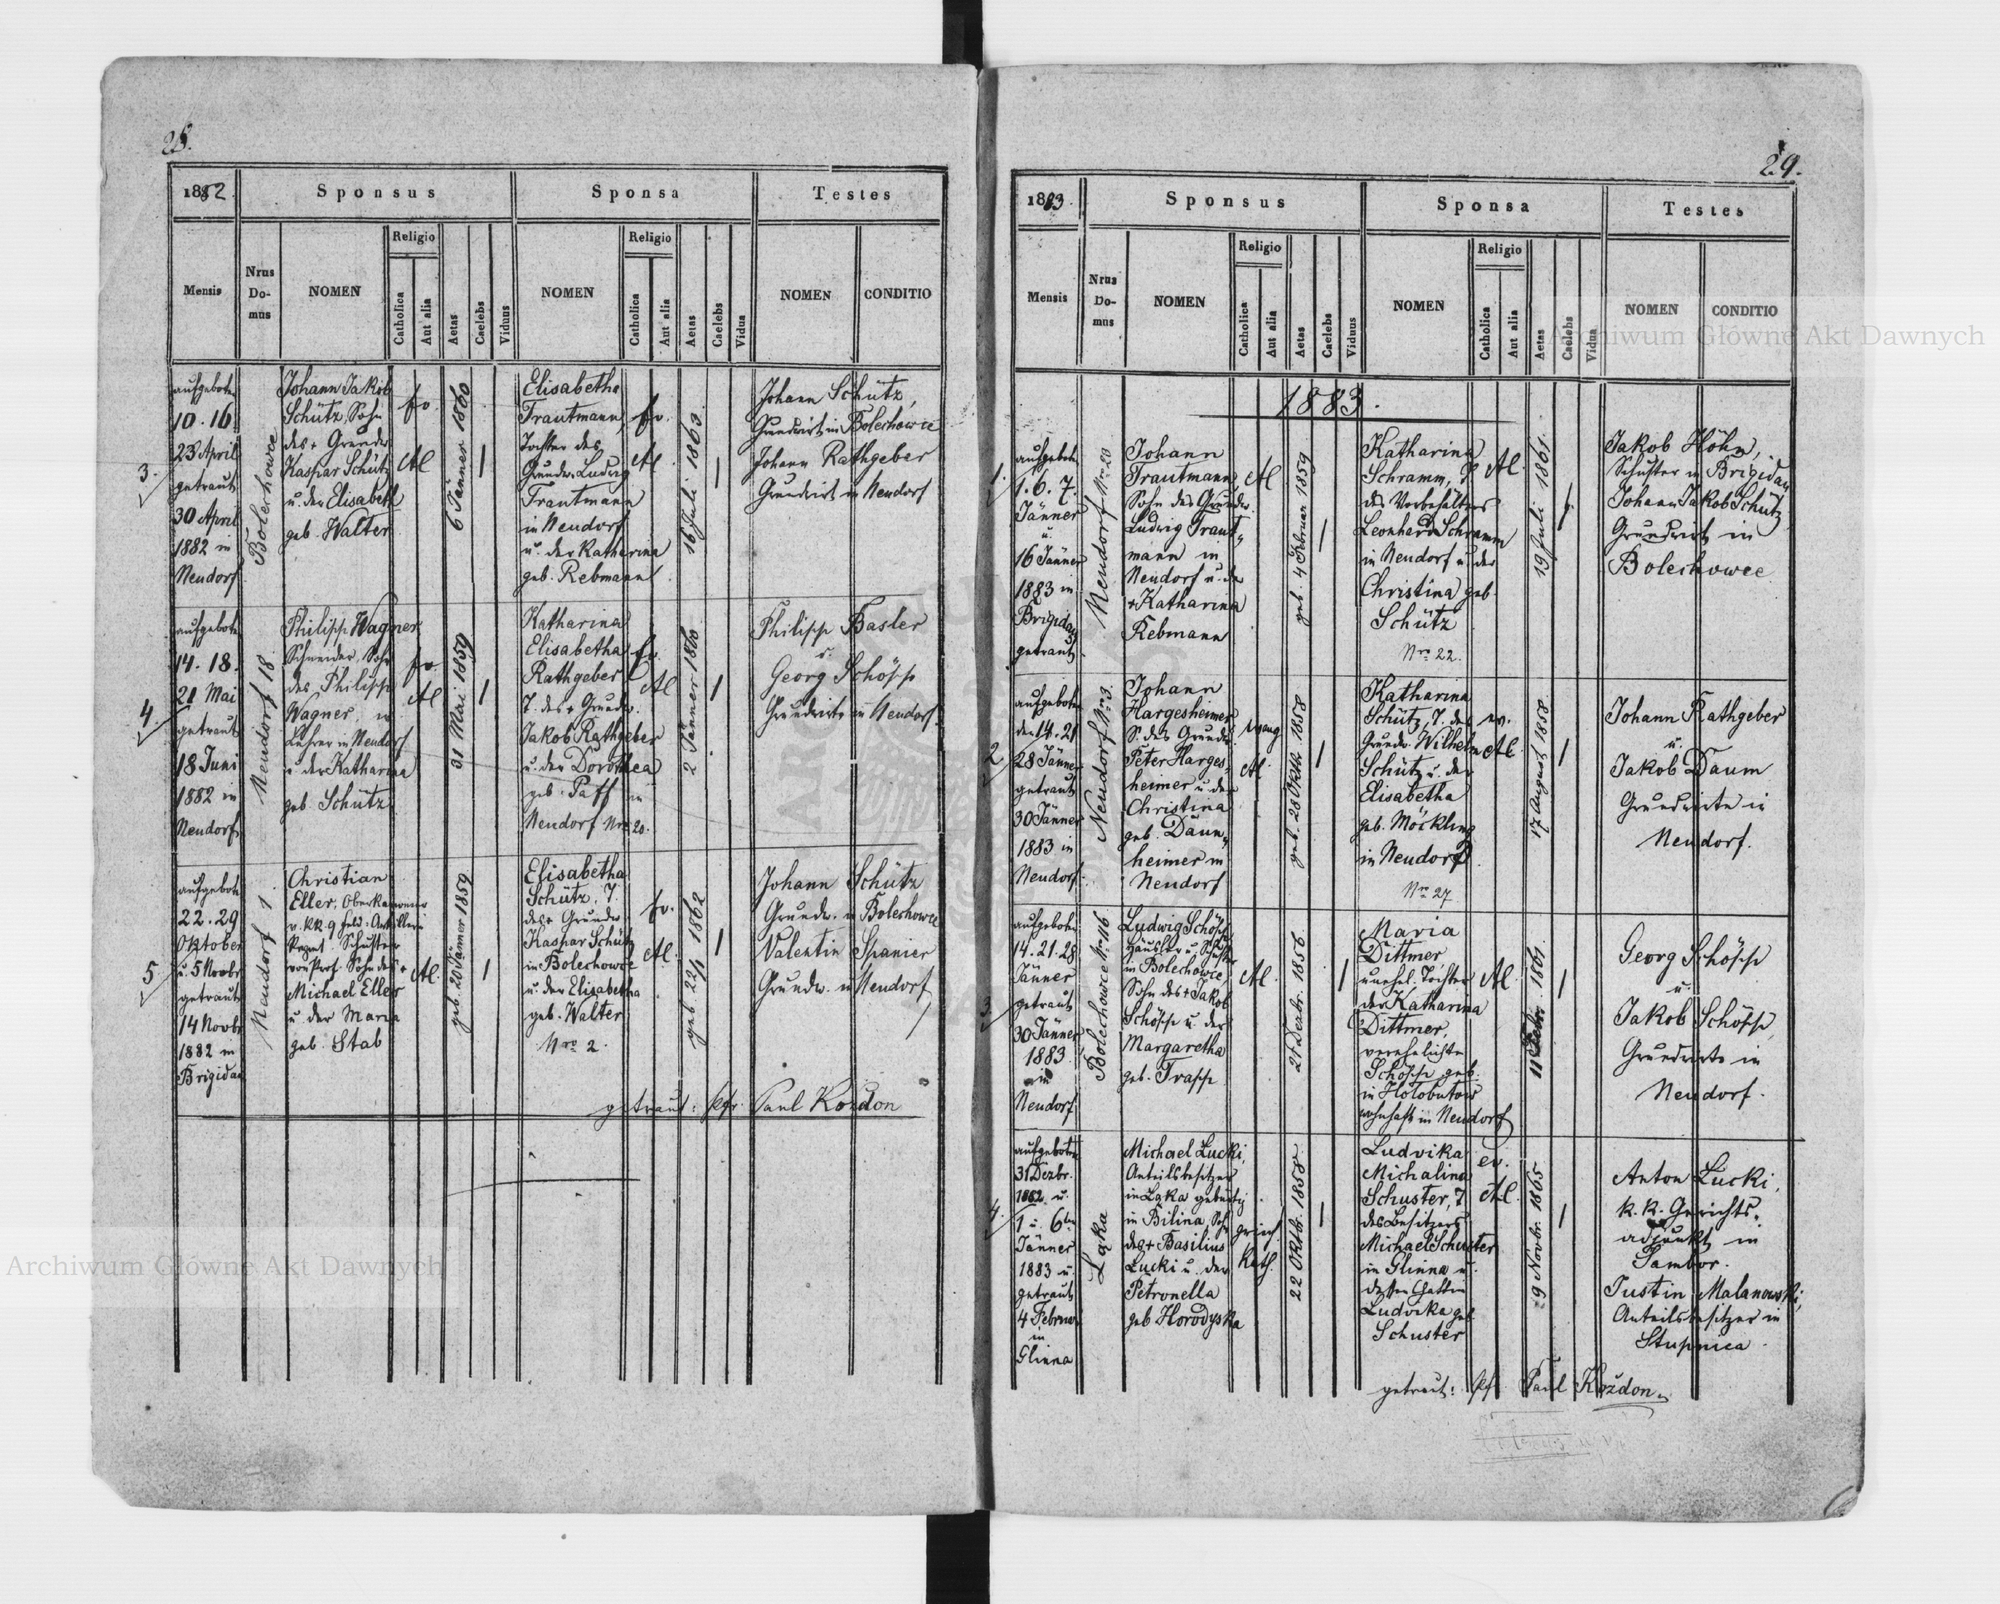 28.
1882.
Sponsus
Sponsa
Testes
Mensis
Nrus Do-mus
NOMEN
Religio
Catholica
Aut alia
Aetas
Caelebs
Viduus
NOMEN
Religio
Catholica
Aut alia
Aetas
Caelebs
Vidua
NOMEN
CONDITIO
3.
aufgeboten
10. 16.
23 April
getraut
30 April
1882 in
Neudorf
Bolechowce
Johann Jakob
Schütz, Sohn
des + Grundw.
Kaspar Schütz
u. der Elisabeth
geb. Walter
Ev.
AC
6 Jänner 1860
Elisabetha
Trautmann,
Tochter des
Grundw. Ludwig
Trautmann
in Neudorf
u. der Katharina
geb. Rebmann
Ev.
AC.
16 Juli 1863
Johann Schütz,
Grundwirt in Bolechowce
Johann Rathgeber
Grundwirt in Neudorf
4.
aufgeboten
14. 18.
21 Mai
getraut
18 Juni
1882 in
Neudorf
Neudorf 18.
Philipp Wagner
Schneider, Sohn
des Philipp
Wagner,
Lehrer in Neudorf
u. der Katharina
geb. Schütz
Ev.
AC
31 Mai 1859
Katharina
Elisabetha
Rathgeber
T. des + Grundw.
Jakob Rathgeber
u. der Dorothea
geb. Paff in
Neudorf Nro 20.
Ev.
AC
2 Jänner 1860
Philipp Basler
u.
Georg Schöpp
Grundwirte in Neudorf.
5
aufgeboten
22. 29
Oktober
u. 5 Novbr
getraut
14 Novbr
1882 in
Brigidau
Neudorf 1.
Christian
Eller, Oberkanonier
v. KK. 9 Feld-Artillerie
Regmt. Schuster
von Prof. Sohn des +
Michael Eller
u. der Maria
geb. Stab
AC.
geb. 20 Jänner 1859
Elisabetha
Schütz, T.
des + Grundw.
Kaspar Schütz
in Bolechowce
u. der Elizabetha
geb. Walter
Nro 2.
Ev.
AC.
geb. 22/1 1862
Johann Schütz
Grundw. in Bolechowce
Valentin Spanier
Grundw. in Neudorf
getraut: Pfr. Paul Kozdon
29.
1883.
Sponsus
Sponsa
Testes
Mensis
Nrus Do-mus
NOMEN
Religio
Catholica
Aut alia
Aetas
Caelebs
Viduus
NOMEN
Religio
Catholica
Aut alia
Aetas
Caelebs
Vidua
NOMEN
CONDITIO
1883.
1.
aufgeboten
1. 6. 7.
Jänner
u.
16 Jänner
1883 in
Brigidau
getraut
Neudorf Nro 20
Johann
Trautmann,
Sohn des Grundw.
Ludwig Traut-
mann in
Neudorf u. der
+ Katharina
Rebmann
AC
geb. 4 Februar 1859
Katharina
Schramm, T
des Vorbehältners
Leonhard Schramm
in Neudorf u. der
Christina geb.
Schütz
Nro 22.
AC.
19 Juli 1861.
Jakob Höhn,
Schuster in Brigidau
Johann Jakob Schütz
Grundwirt in
Bolechowce
2
aufgeboten
den 14. 21
28 Jänner
getraut
30 Jänner
1883 in
Neudorf.
Neudorf Nro 3.
Johann
Hargesheimer
S. des Grundw.
Peter Harges-
heimer u. der
Christina
geb. Daun-
heimer in
Neudorf
evang
AC.
geb. 28 Oktbr. 1858
Katharina
Schütz, T. des
Grundw. Wilhelm
Schütz u. der
Elisabetha
geb. Möckling
in Neudorf
Nro 27.
ev.
AC.
17 August 1858.
Johann Rathgeber
u.
Jakob Daum
Grundwirte in
Neudorf.
3.
aufgeboten
14. 21. 28
Jänner
getraut
30 Jänner
1883
in
Neudorf
Bolechowce Nro 16
Ludwig Schöpp
Häusler u. Schuster
in Bolechowce,
Sohn des + Jakob
Schöpp u. der
Margaretha
geb. Trapp
AC.
21 Dezbr. 1856.
Maria
Dittmer
unehel. Tochter
der Katharina
Dittmer,
verehelichte
Schöpp geb.
in Holobutow
wohnhaft in Neudorf
AC
11 Febr. 1861.
Georg Schöpp
u.
Jakob Schöpp,
Grundwirte in
Neudorf.
4.
aufgeboten
31 Dezbr.
1882 u.
1 u. 6ten
Jänner
1883 u.
getraut
4 Februar
in
Glinna
Łąka
Michael Łucki,
Anteilsbesitzer
in Łąka gebürtig
in Bilina, Sohn
des + Basilius
Łucki u. der
Petronella
geb Horodyska
griech.
Kath.
22 Oktbr. 1858.
Ludvika
Michalina
Schuster, T
des Besitzers
Michael Schuster
in Glinna u.
dessen Gattin
Ludvika geb.
Schuster
ev.
AC.
9 Novbr. 1865
Anton Łucki,
k. k. Gerichts-
adjunkt in
Sambor.
Justin Malanowski,
Anteilsbesitzer in
Stupnica.
getraut: Pfr Paul Kozdon.
Archiwum Główne Akt Dawnych
Archiwum Główne Akt Dawnych